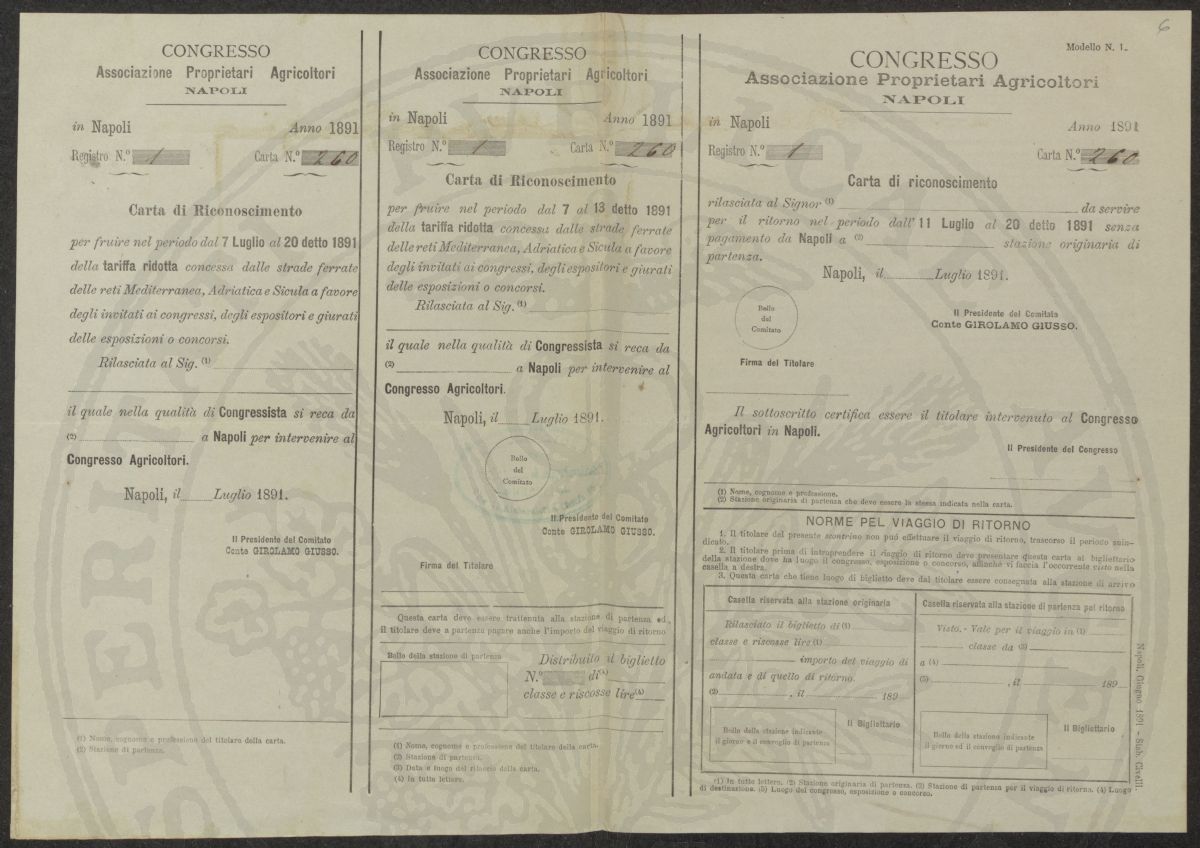 6
CONGRESSO
Associazione Proprietari Agricoltori
NAPOLI
in Napoli Anno 1891
Registro N.º 1 Carta N.º 260
Carta di Riconoscimento
per fruire nel periodo dal 7 Luglio al 20 detto 1891
della tariffa ridotta concessa dalle strade ferrate
delle reti Mediterranea, Adriatica e Sicula a favore
degli invitati ai congressi, degli espositori e giurati
delle esposizioni o concorsi.
Rilasciata al Sig. (1)
il quale nella qualità di Congressista si reca da
(2) a Napoli per intervenire al
Congresso Agricoltori.
Napoli, il Luglio 1891.
Il Presidente del Comitato
Conte GIROLAMO GIUSSO.
(1) Nome, cognome e professione del titolare della carta.
(2) Stazione di partenza.
CONGRESSO
Associazione Proprietari Agricoltori
NAPOLI
in Napoli Anno 1891
Registro N.º 1 Carta N.º 260
Carta di Riconoscimento
per fruire nel periodo dal 7 al 13 detto 1891
della tariffa ridotta concessa dalle strade ferrate
delle reti Mediterranea, Adriatica e Sicula a favore
degli invitati ai congressi, degli espositori e giurati
delle esposizioni o concorsi.
Rilasciata al Sig. (1)
il quale nella qualità di Congressista si reca da
(2) a Napoli per intervenire al
Congresso Agricoltori.
Napoli, il Luglio 1891.
Bollo
del
Comitato
Il Presidente del Comitato
Conte GIROLAMO GIUSSO.
Firma del Titolare
Questa carta deve essere trattenuta alla stazione di partenza ed
il titolare deve a partenza pagare anche l'importo del viaggio di ritorno
Bollo della stazione di partenza
Distribuito il biglietto
N.º di (4)
classe e riscosse lire (4)
(1) Nome, cognome e professione del titolare della carta.
(2) Stazione di partenza.
(3) Data e luogo del rilascio della carta.
(4) In tutte lettere.
Modello N. 1.
CONGRESSO
Associazione Proprietari Agricoltori
NAPOLI
in Napoli Anno 1891
Registro N.º 1 Carta N.º 260
Carta di riconoscimento
rilasciata al Signor (1) da servire
per il ritorno nel periodo dall' 11 Luglio al 20 detto 1891 senza
pagamento da Napoli a (2) stazione originaria di
partenza.
Napoli, il Luglio 1891.
Bollo
del
Comitato
Il Presidente del Comitato
Conte GIROLAMO GIUSSO.
Firma del Titolare
Il sottoscritto certifica essere il titolare intervenuto al Congresso
Agricoltori in Napoli.
Il Presidente del Congresso
(1) Nome, cognome e professione.
(2) Stazione originaria di partenza che deve essere la stessa indicata nella carta.
NORME PEL VIAGGIO DI RITORNO
1. Il titolare del presente scontrino non può effettuare il viaggio di ritorno, trascorso il periodo suin-
dicato.
2. Il titolare prima di intraprendere il viaggio di ritorno deve presentare questa carta al bigliettario
della stazione dove ha luogo il congresso, esposizione o concorso, affinchè vi faccia l'occorrente visto nella
casella a destra.
3. Questa carta che tiene luogo di biglietto deve dal titolare essere consegnata alla stazione di arrivo
Casella riservata alla stazione originaria
Rilasciato il biglietto di (1)
classe e riscosse lire (1)
importo del viaggio di
andata e di quello di ritorno.
(2) , il 189
Bollo della stazione indicante
il giorno e il convoglio di partenza
Il Bigliettario
Casella riservata alla stazione di partenza pel ritorno
Visto. - Vale per il viaggio in (1)
classe da (3)
a (4)
(5) , il 189
Bollo della stazione indicante
il giorno ed il convoglio di partenza
Il Bigliettario
(1) In tutte lettere. (2) Stazione originaria di partenza. (3) Stazione di partenza per il viaggio di ritorno. (4) Luogo
di destinazione. (5) Luogo del congresso, esposizione o concorso.
Napoli, Giugno 1891 - Stab. Civelli.